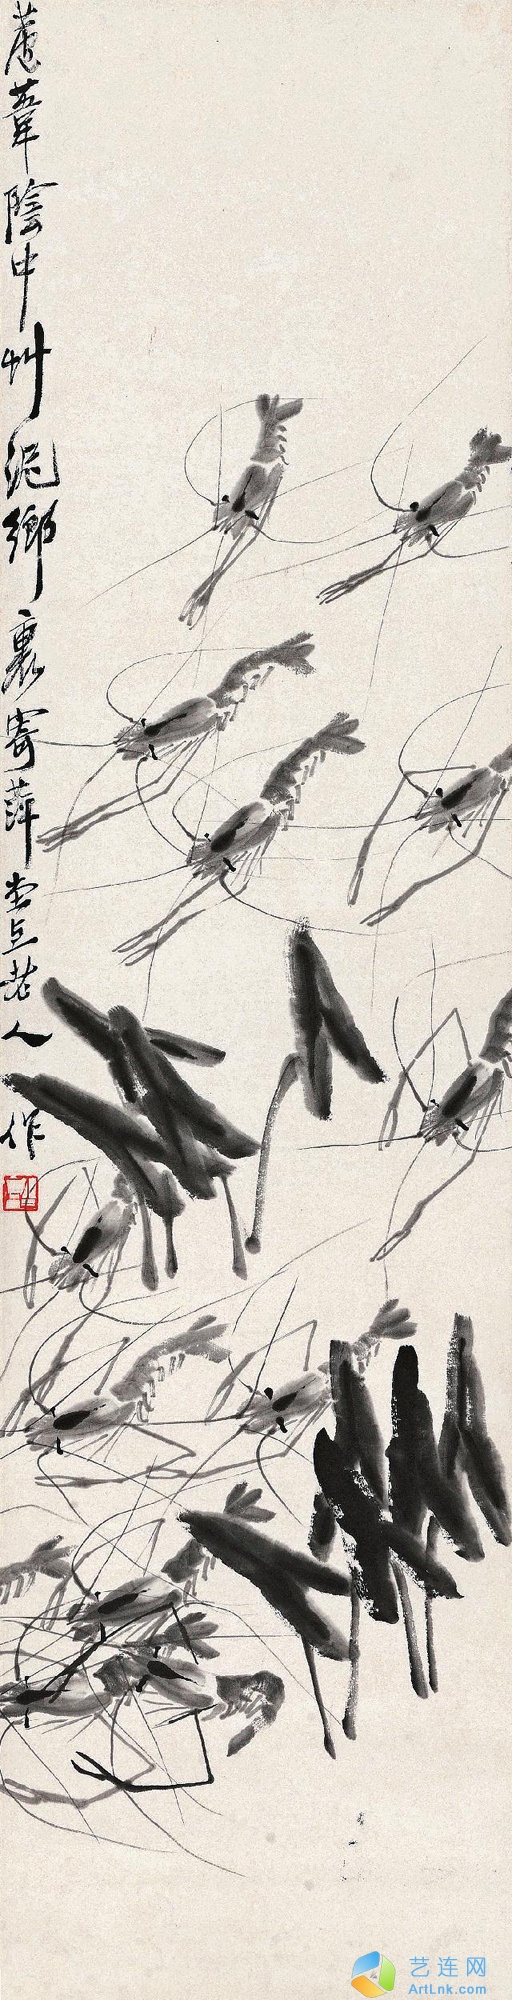 蘆葦陰中艸泥鄉裏寄萍堂上老人作
艺连网
ArtLnk.com